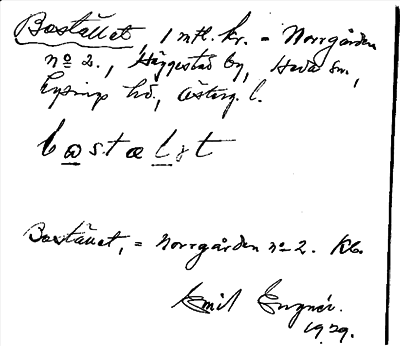 Bostället 1 mtl. kr. = Norrgården
no 2., Häggestad by, Heda sn.,
Lysings hd, Österg. l.
bostælət
Bostället, = Norrgården no 2. Kb.
Emil Engnér.
1929.